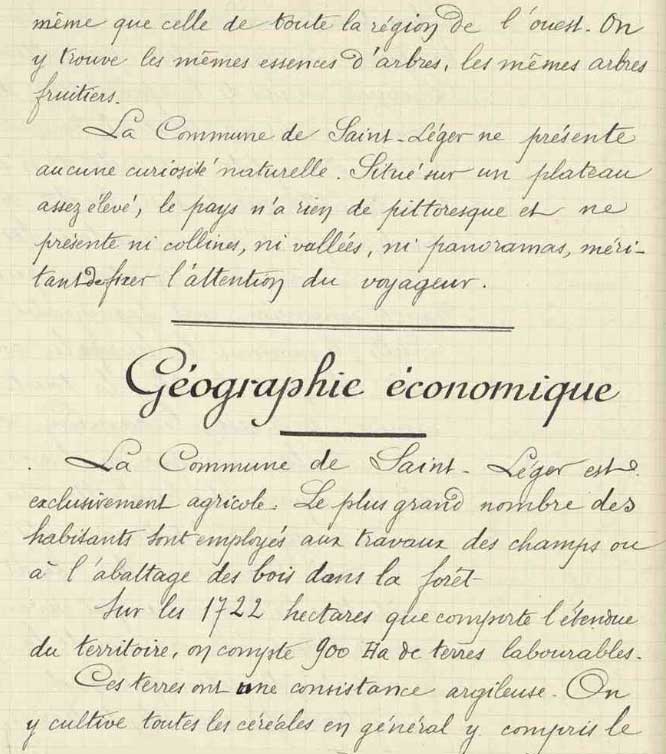 même que celle de toute la région de l'ouest. On
y trouve les mêmes essences d'arbres, les mêmes arbres
fruitiers.
La Commune de Saint-Léger ne présente
aucune curiosité naturelle. Situé sur un plateau
assez élevé, le pays n'a rien de pittoresque et ne
présente ni collines, ni vallées, ni panoramas, méri-
tant de fixer l'attention du voyageur.
Géographie économique
La Commune de Saint-Léger est
exclusivement agricole. Le plus grand nombre des
habitants sont employés aux travaux des champs ou
à l'abattage des bois dans la forêt
Sur les 1722 hectares que comporte l'étendue
du territoire, on compte 900 Ha de terres labourables.
Ces terres ont une consistance argileuse. On
y cultive toutes les céréales en général y compris le